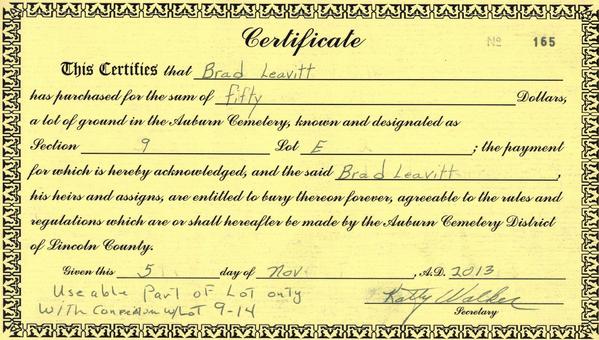 Certificate
No 165
This Certifies that Brad Leavitt
has purchased for the sum of fifty Dollars,
a lot of ground in the Auburn Cemetery, known and designated as
Section 9 Lot E ; the payment
for which is hereby acknowledged, and the said Brad Leavitt ,
his heirs and assigns, are entitled to bury thereon forever, agreeable to the rules and
regulations which are or shall hereafter be made by the Auburn Cemetery District
of Lincoln County.
Given this 5 day of Nov , A.D. 2013
Useable Part of Lot only
With w/Lot 9-14
Kathy Walker
Secretary